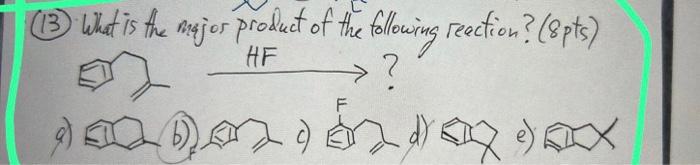 (13) What is the major product of the following reaction? (8pts)
HF
?
F
a) b) c) d) e)
F